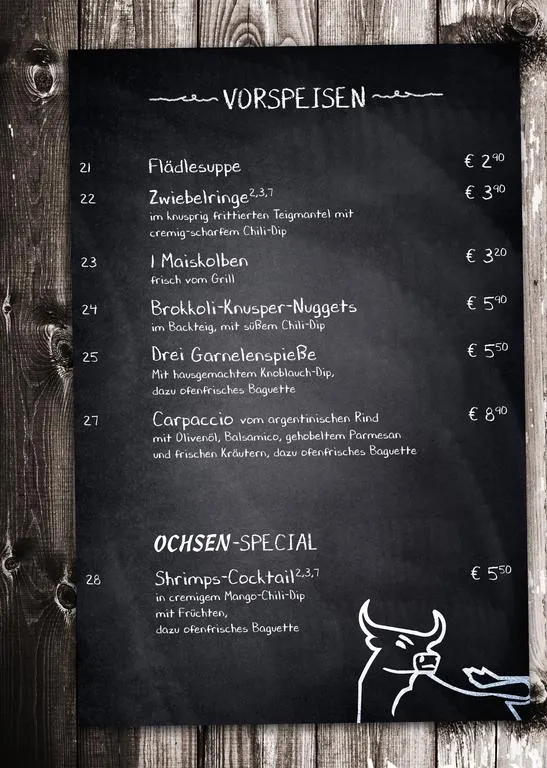 VORSPEISEN
21 Flädlesuppe € 2⁹⁰
22 Zwiebelringe²,³,⁷ € 3⁹⁰
im knusprig frittierten Teigmantel mit
cremig-scharfem Chili-Dip
23 1 Maiskolben € 3²⁰
frisch vom Grill
24 Brokkoli-Knusper-Nuggets € 5⁹⁰
im Backteig, mit süßem Chili-Dip
25 Drei Garnelenspieße € 5⁵⁰
Mit hausgemachtem Knoblauch-Dip,
dazu ofenfrisches Baguette
27 Carpaccio vom argentinischen Rind € 8⁹⁰
mit Olivenöl, Balsamico, gehobeltem Parmesan
und frischen Kräutern, dazu ofenfrisches Baguette
OCHSEN-SPECIAL
28 Shrimps-Cocktail²,³,⁷ € 5⁵⁰
in cremigem Mango-Chili-Dip
mit Früchten,
dazu ofenfrisches Baguette